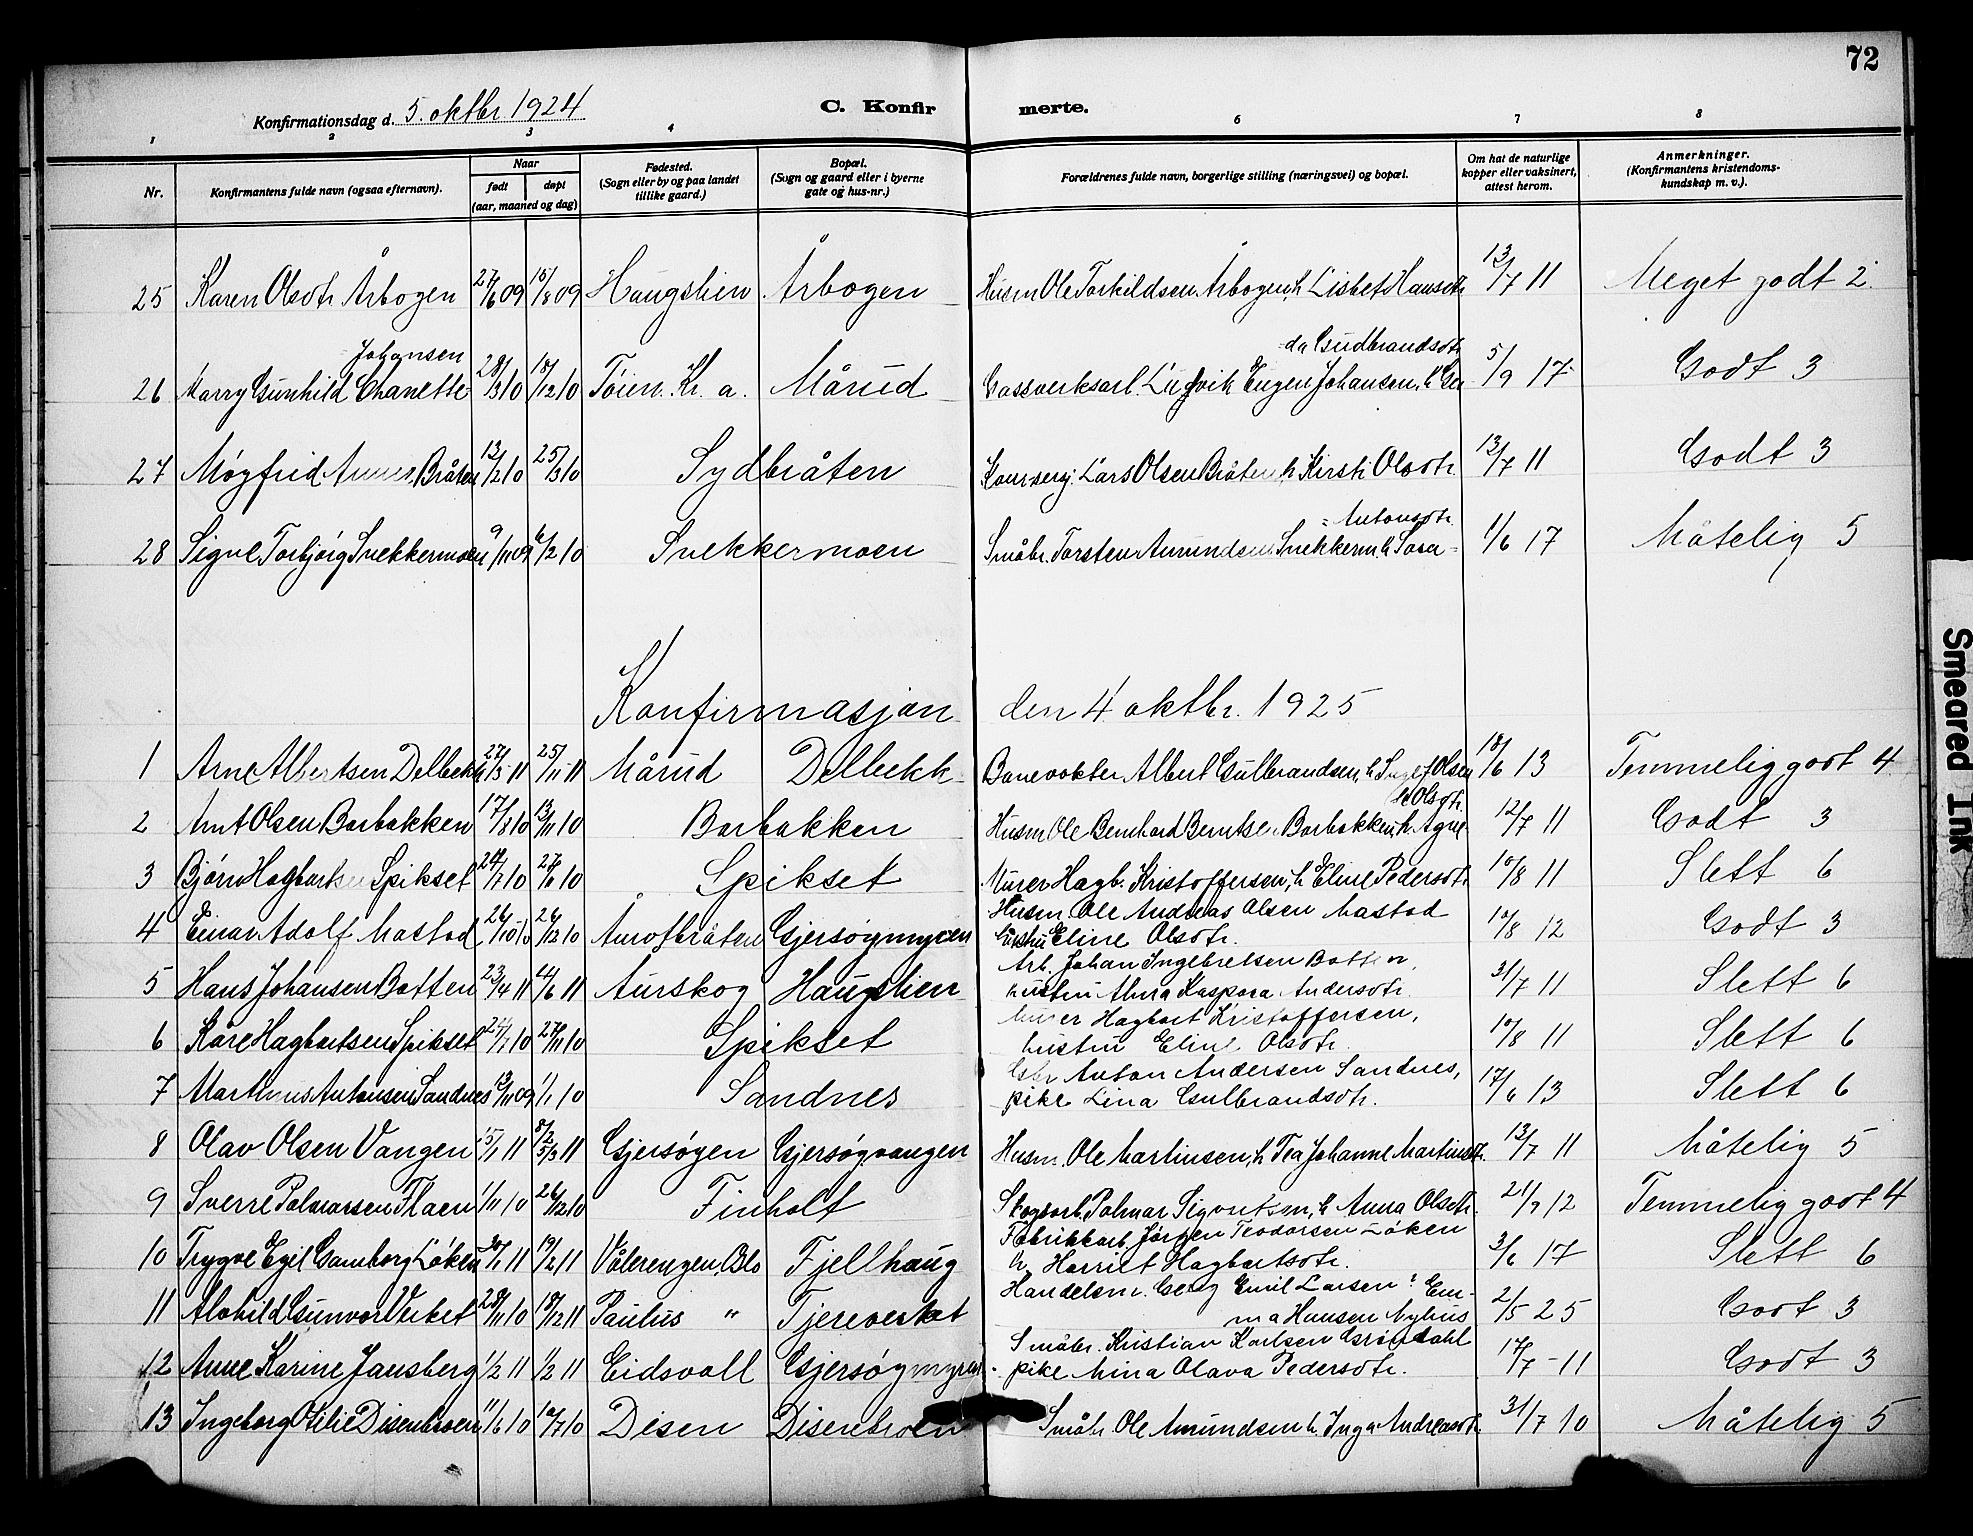 72
Konfirmationsdag d. 5. oktbr 1924
C. Konfir merte.
1 2 3 4 6 7 8
Nr. Konfirmantens fulde navn (ogsaa efternavn). Naar født døpt (aar, maaned og dag) Fødested. (Sogn eller by og paa landet tillike gaard.) Bopæl. (Sogn og gaard eller i byerne gate og hus-nr.) Forældrenes fulde navn, borgerlige stilling (næringsvei) og bopæl. Om hat de naturlige kopper eller vaksinert, attest herom. Anmerkninger. (Konfirmantens kristendoms-kundskap m. v.).
25 Karen Olsdtr. Årbogen 27/6 09 15/8 09 Haugslien Årbogen Husm Ole Torkildsen Årbogen, h Lisbet Hansdtr 13/7 11 Meget godt 2
Johansen da Gudbrandsdtr
26 Marry Gunhild Chanette 28/3 10 18/12 10 Tøien. Kr. a. Mårud Gassverksarb. Ludvik Eugen Johansen, h Gu 5/9 17 Godt 3
27 Møyfrid Bråten 13/2 10 25/3 10 Sydbråten Lars Olsen Bråten h Kirsti Olsdtr. 13/7 11 Godt 3
= Antonsdtr.
28 Signe Torbjørg Snekkermoen 9/11 09 6/2 10 Snekkermoen Småbr. Torsten Amundsen Snekkerm. h Sosa = 1/6 17 Måtelig 5
Konfirmasjon den 4 oktbr. 1925
1 Arne Albertsen Delbekk 27/5 11 25/11 11 Mårud Delbekk Banevokter Albert Gulbrandsen, h Olsen 18/6 13 Temmelig godt 4
Olsdtr.
2 Arnt Olsen Borbakken 17/8 10 13/11 10 Borbakken Husm Ole Bernhard Berntsen Borbakken, h Agne 12/7 11 Godt 3
3 Bjørn Hagbartsen Spikset 24/7 10 27/11 10 Spikset Murer Hagb. Kristoffersen, h Eline Pedersdtr. 10/8 11 Slett 6
4 Einar Adolf Mastad 26/10 10 26/12 10 Aurotbråten Gjersøgmyren Husm. Ole Andreas Olsen Mastad
hustru Eline Olsdtr. 10/8 12 Godt 3
5 Hans Johansen Botten 23/4 11 4/6 11 Aurskog Haugslien Arb. Johan Ingebretsen Botten,
hustru Alma Kaspara Andersdtr. 31/7 11 Slett 6
6 Kåre Hagbartsen Spikset 24/7 10 27/11 10 Spikset Murer Hagbart Kristoffersen,
hustru Eline Olsdtr. 10/8 11 Slett 6
7 Martinius Antonsen Sandnes 13/11 09 1/1 10 Sandnes Gbr Anton Andersen Sandnes,
pike Lina Gulbrandsdtr. 17/6 13 Slett 6
8 Olav Olsen Vangen 15/1 11 5/3 11 Gjersøyen Gjersøgvangen Husm. Ole Martinsen, h Tea Johanne Martinsdtr. 13/7 11 Måtelig 5
9 Sverre Palmarsen Flaen 1/11 10 26/12 10 Finholt Skogsarb. Palmar Sigvartsen, h Anna Olsdtr. 21/9 12 Temmelig godt 4
10 Trygve Egil Gamborg Løken 30/1 11 19/2 11 Vålerengen, Blo Fjellhaug Fabrikkarb Jørgen Teodorsen Løken
h. Harriet Hagbartsdtr. 3/6 17 Slett 6
11 Alvhild Gunvor Verket 28/11 10 18/12 11 Paulus " Tjereverket Handelsm. Georg Emil Larsen ? Em-
ma Hansen Nyhus 2/5 25 Godt 3
12 Anne Karine Jansberg 1/2 11 1/2 11 Eidsvoll Gjersøgmyren Småbr. Kristian Karlsen Grøndahl
pike Mina Olava Pedersdtr. 17/7 - 11 Godt 3
13 Ingeborg Otilie Disenbroen 11/6 10 10/7 10 Disen Disenbroen Småbr Ole Amundsen h. Inga Andreasdtr. 31/7 10 Måtelig 5
Smeared Ink